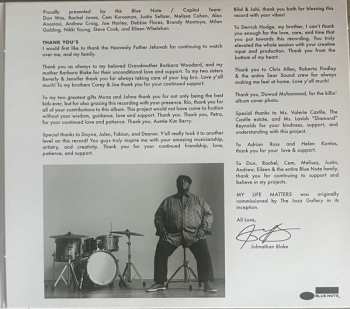 Proudly presented by the Blue Note / Capitol Team:
Don Was, Rachel Jones, Cem Kurosman, Justin Seltzer, Melissa Cohen, Alex
Andrew Craig, Joe Harley, Debbie Flores, Brandy Montoya, Milan
Golding, Nikki Young, Steve Cook, and Eileen Whelehan
THANK YOU'S
I would first like to thank the Heavenly Father Jehovah for continuing to watch
over me, and my family.
Thank you as always to my beloved Grandmother Barbara Woodard, and my
mother Barbara Blake for their unconditional love and support. To my two sisters
Beverly & Jennifer thank you for always taking care of your big bro. Love y'all
much! To my brothers Corey & Joe thank you for your continued support!
To my two greatest gifts Mana and Johna thank you for not only being the best
kids ever, but for also gracing this recording with your presence. Rio, thank you for
all of your contributions to this album. This project would not have come to fruition
without your wisdom, guidance, love and support. Thank you. Thank you, Petra,
for your continued love and patience. Thank you, Auntie Kim Berry.
Special thanks to Dayna, Jalen, Fabian, and Dezron. Y'all really took it to another
level on this record! You guys truly inspire me with your amazing musicianship,
artistry, and creativity. Thank you for your continued friendship, love,
patience, and support.
Bilal & Jahi, thank you both for blessing this
record with your vibes!
To Derrick Hodge, my brother, I can't thank
you enough for the love, care, and time that
you put towards this recording. You truly
elevated the whole session with your creative
input and production. Thank you from the
bottom of my heart.
Thank you to Chris Allen, Roberto Findley
& the entire Sear Sound crew for always
making me feel at home. Love y'all much!
Thank you, Dawud Muhammad, for the killin'
album cover photo.
Special thanks to Ms. Valerie Castile, The
Castile estate, and Ms. Lavish "Diamond"
Reynolds for your kindness, support, and
understanding with this project.
To Adrian Ross and Helen Kontos,
thank you for your love & support.
To Don, Rachel, Cem, Melissa, Justin,
Andrew, Eileen & the entire Blue Note family,
thank you for continuing to support and
believe in my projects.
MY LIFE MATTERS was originally
commissioned by The Jazz Gallery in its
inception.
All Love,
Johnathan Blake
BLUE NOTE